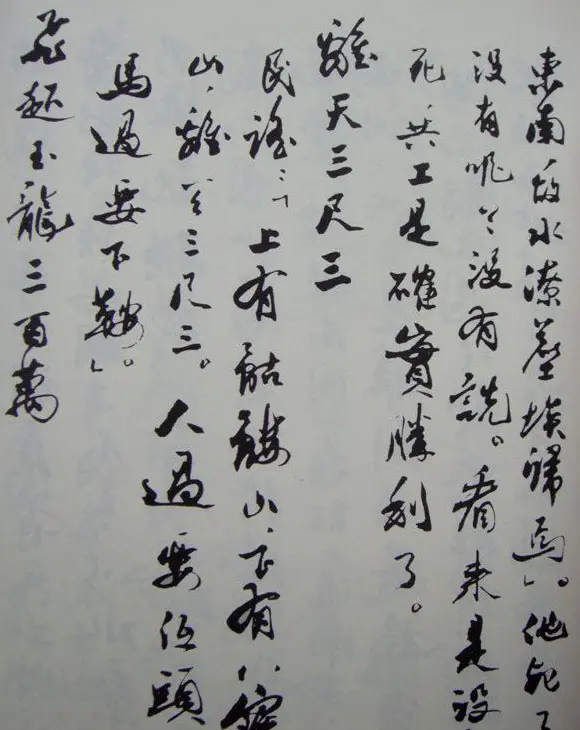 東南故水潦塵埃歸焉」。他死了
没有呢?没有説。看來是没
死,共工是確實勝利了。
離天三尺三
民謡:「上有骷髏山,下有八寶
山,離天三尺三。人過要低頭
馬過要下鞍」。
飛起玉龍三百萬